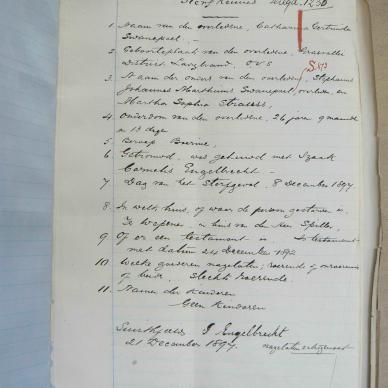 Sterfkennis 1230
1. Naam van den overledene, Catharina Gertruida
Swanepoel, —
2. Geboorteplaats van den overledene,
District, O V S
3. Namen der ouders van den overledene, Stephanus
Johannes Marthinus Swanepoel, overleden, en
Martha Sophia Strauss,
4. Ouderdom van den overledene, 26 jaren 9 maanden
en 13 dagen
5. Beroep Boerin,
6. Getrouwd, was gehuwd met Izaak
Cornelis Engelbrecht —
7. Dag van het Sterfgeval, 8 December 1897
8. In welk huis, of waar de persoon gestorven is,
Te Wepener, in huis van den Heer
9. Of er een Testament is. Testament
met datum 24 December 1892
10. Welke goederen nagelaten, roerende of onroerende
of beide Slechts Roerende.
11. Namen der kinderen
Geen Kinderen
Engelbrecht
21 December 1897.